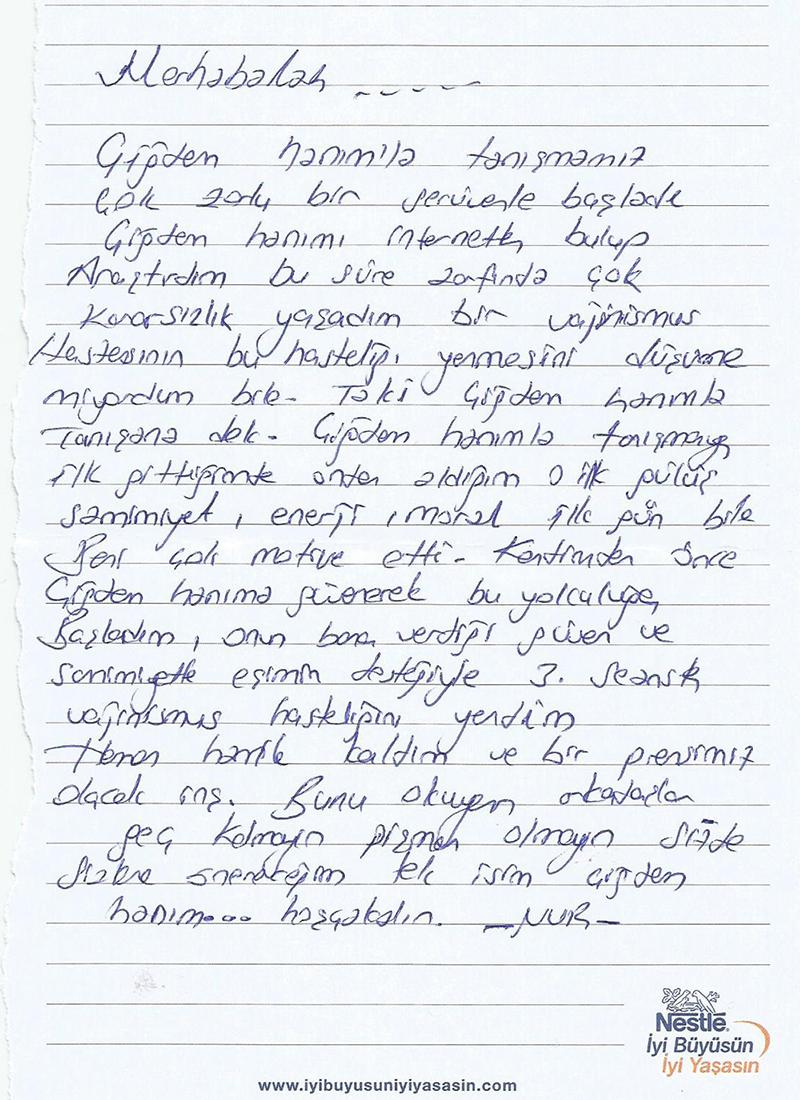 Merhabalar -----
Çiğdem hanım'la tanışmamız
Çok zorlu bir serüvenle başladı
Çiğdem hanımı internetten bulup
Araştırdım bu süre zarfında çok
Kararsızlık yaşadım bir vajinismus
Hastasının bu hastalığı yenmesini düşüne
miyordum bile- Taki Çiğdem hanımla
Tanışana dek- Çiğdem hanımla tanışmaya
ilk gittiğimde ondan aldığım o ilk gülüş
samimiyet, enerji, moral ilk gün bile
Beni çok motive etti- Kendimden önce
Çiğdem hanıma güvenerek bu yolculuğa
Başladım, onun bana verdiği güven ve
samimiyetle eşimin desteğiyle 3. seansta
vajinismus hastalığını yendim
Hemen hamile kaldım ve bir prensimiz
olacak inş. Bunu okuyan arkadaşlar
geç kalmayın pişman olmayın sizde
Sizlere önereceğim tek isim Çiğdem
hanım... hoşçakalın. -NUR-
Nestlé
İyi Büyüsün
İyi Yaşasın
www.iyibuyusuniyiyasasin.com